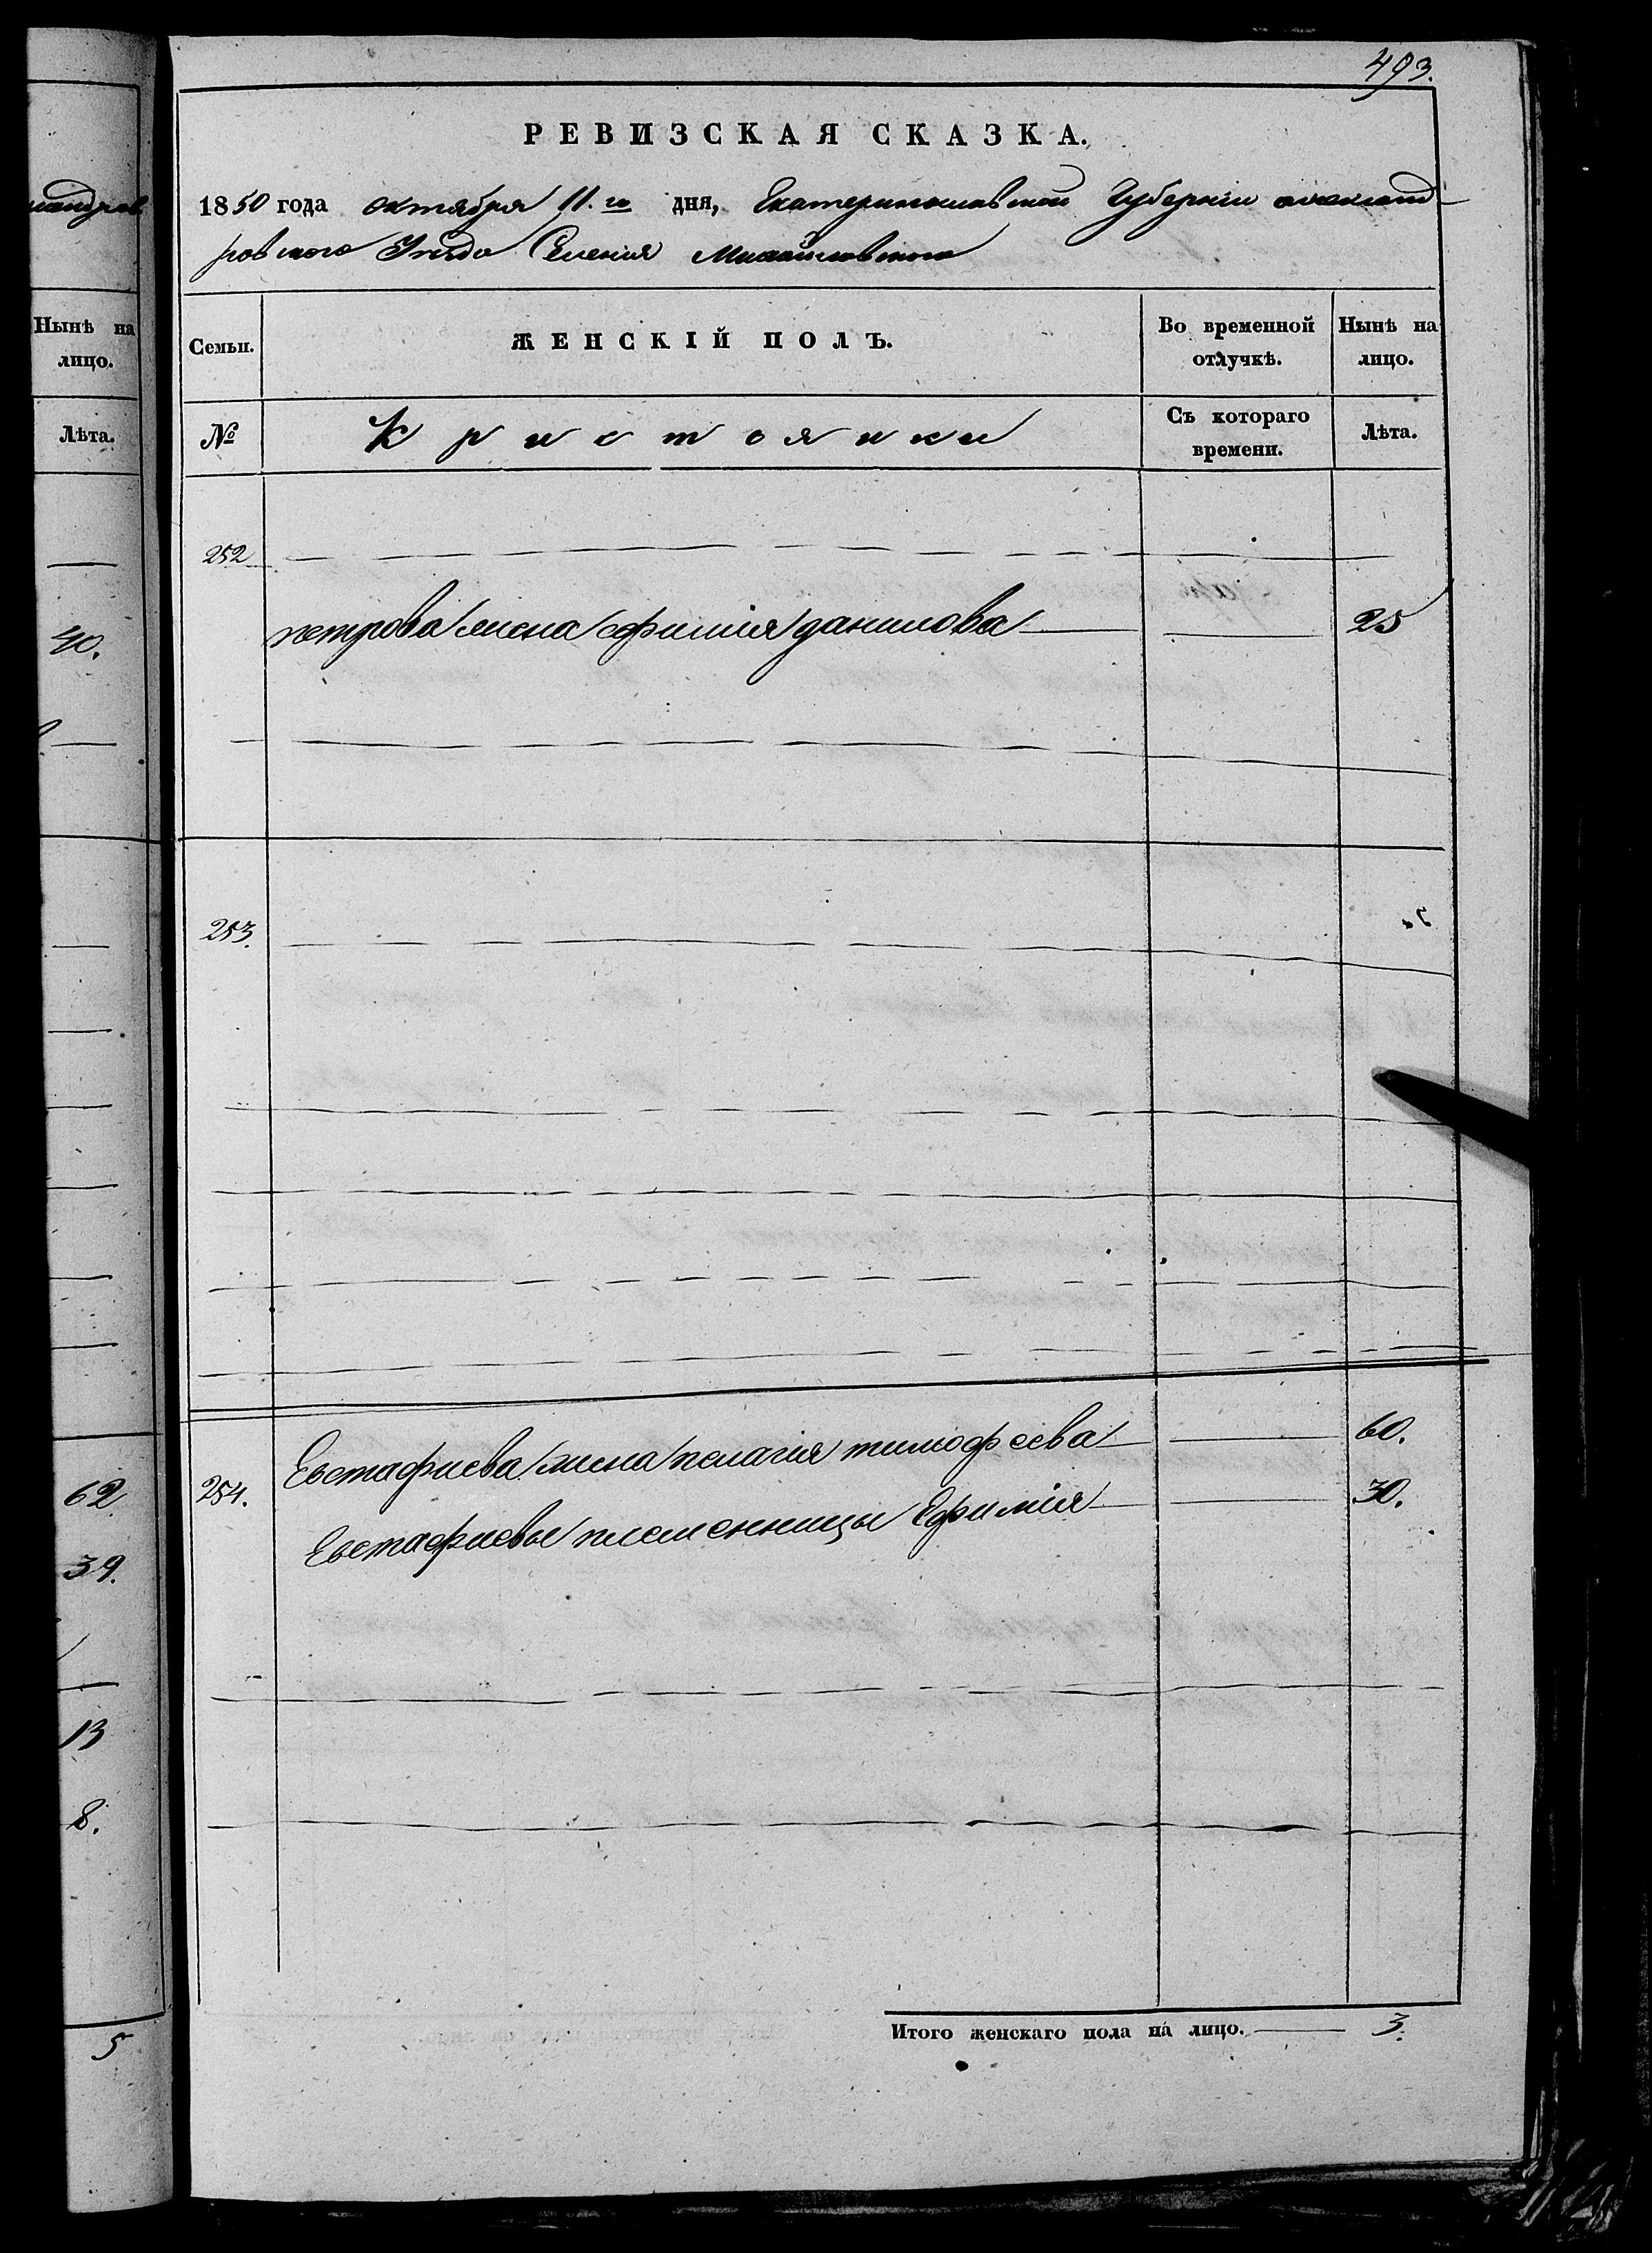 493.
РЕВИЗСКАЯ СКАЗКА.
1850 года октября 11.го дня, Екатеринославской Губернии александ-
ровского Уезда Селения Михайловского
Семьи. ЖЕНСКІЙ ПОЛЪ. Во временной отлучкѣ. Нынѣ на лицо.
№ Кристоянки Съ котораго времени. Лѣта.
252
петрова жена ефимия данилова 25
253.
Евстафиева жена пелагия тимофеева 60.
254. Евстафиевы племенницы Ефимия 30.
Итого женскаго пола на лицо. 3.
Нынѣ на
лицо.
Лѣта.
40.
62
39.
13
8.
5